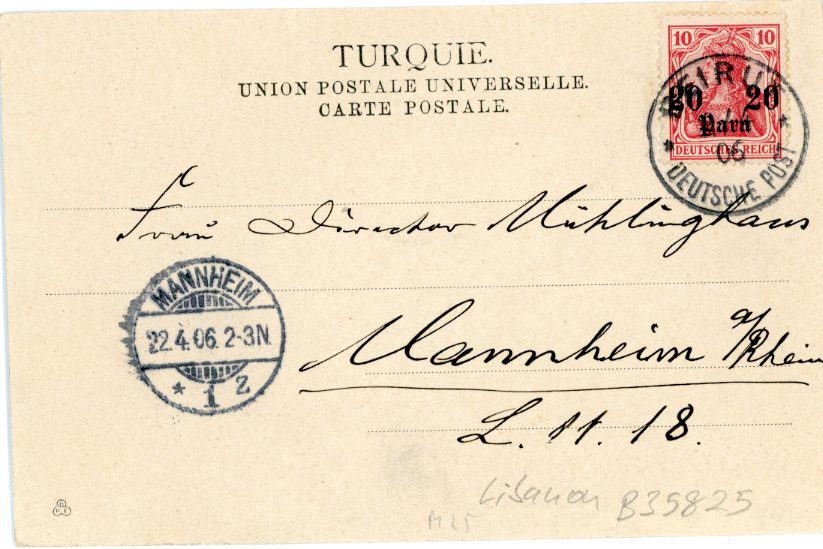 TURQUIE.
UNION POSTALE UNIVERSELLE.
CARTE POSTALE.
10 10
20 20
Para
DEUTSCHES REICH
BEIRUT
06
DEUTSCHE POST
Frau Director Mühlinghaus
MANNHEIM
22.4.06.2-3N.
* 1 z
Mannheim a/Rhein
L. 11. 18.
Libanon B35825
M25